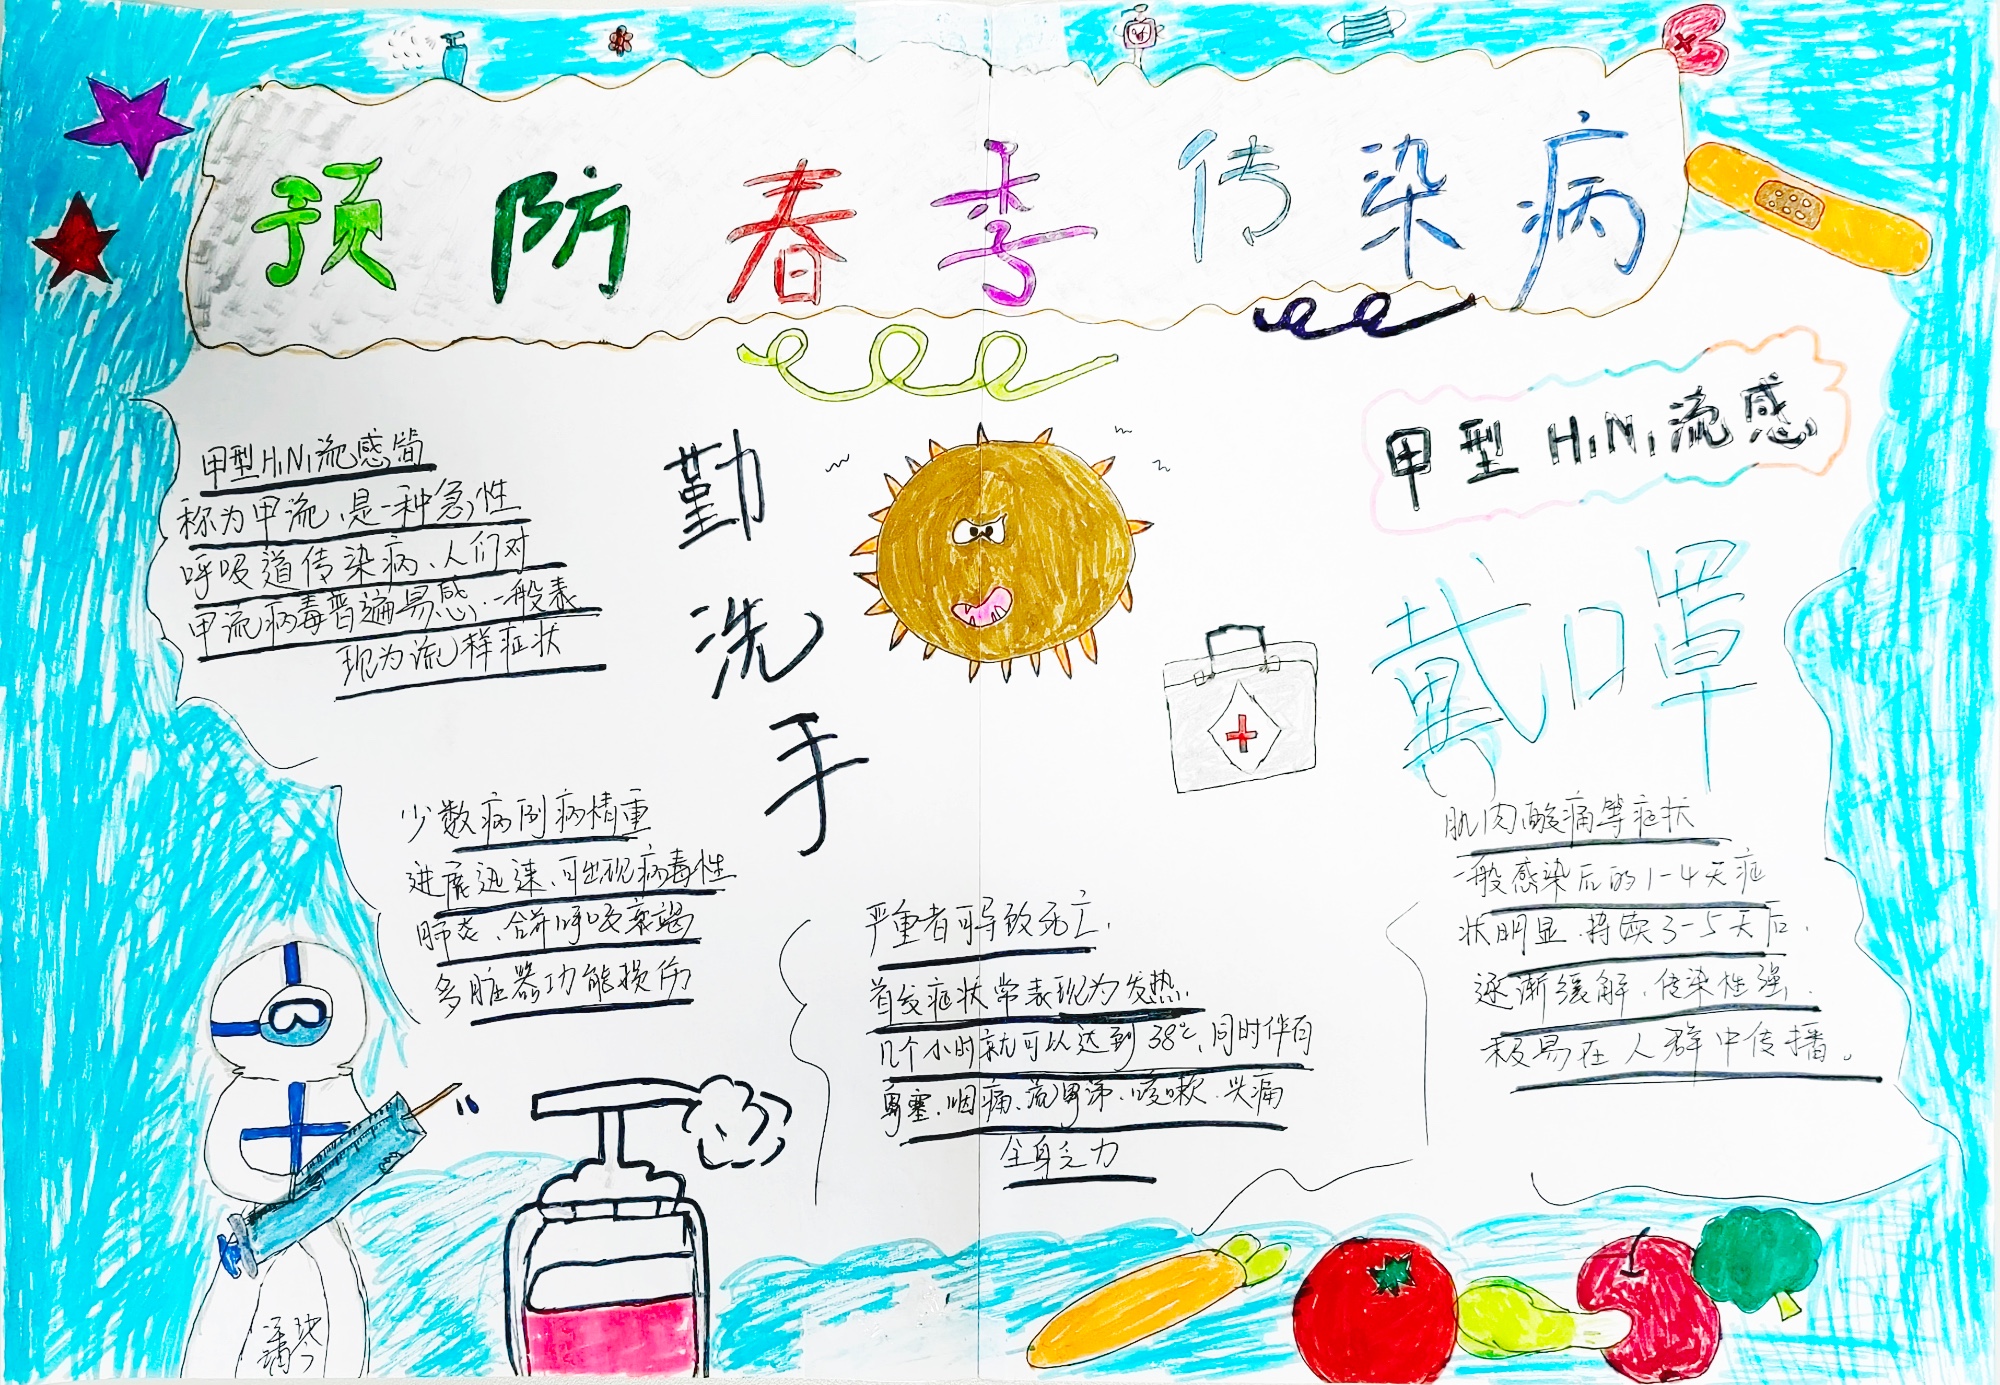 预防春季传染病
甲型H1N1流感
甲型H1N1流感简
称为甲流、是一种急性
呼吸道传染病、人们对
甲流病毒普遍易感.一般表
现为流样症状
勤
洗
手
戴口罩
少数病例病情重
进展迅速、可出现病毒性
肺炎、合并呼吸衰竭
多脏器功能损伤
严重者可导致死亡.
首发症状常表现为发热.
几个小时就可以达到38℃,同时伴有
鼻塞、咽痛、流鼻涕、咳嗽、头痛
全身乏力
肌肉酸痛等症状
一般感染后的1-4天症
状明显.持续3-5天后.
逐渐缓解.传染性强.
极易在人群中传播。